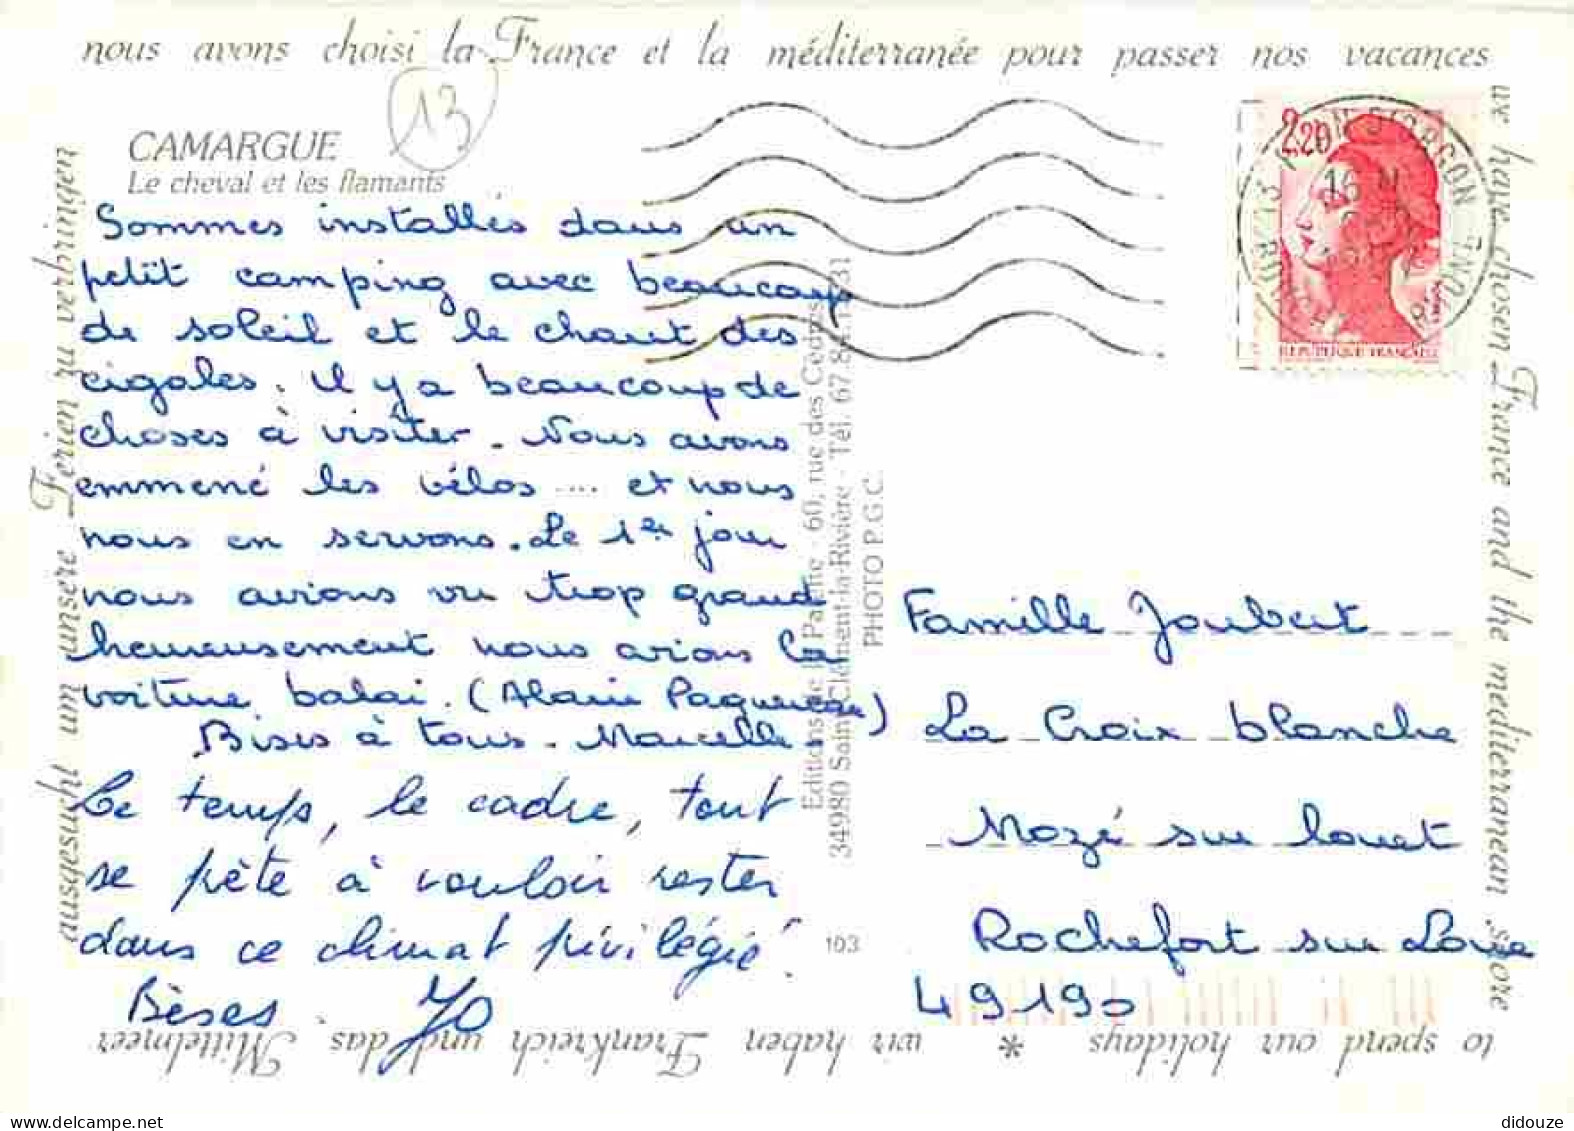 nous avons choisi la France et la méditerranée pour passer nos vacances
13
CAMARGUE
Le cheval et les flamants
Sommes installés dans un
petit camping avec beaucoup
de soleil et le chant des
cigales. Il y a beaucoup de
choses à visiter. Nous avons
emmené les vélos .... et nous
nous en servons. Le 1er jour
nous avions vu trop grand
heureusement nous avions la
voiture balai. (Alain Paquereau)
Bises à tous. Marcelle
Le temps, le cadre, tout
se pète à vouloir rester
dans ce climat privilégié!
Bèses. JO
Editions de la Pallite 60, rue des Cèdres
34980 Saint-Clément-la-Rivière - Tél. 67.84.1.31
PHOTO P.G.C.
103
2,20
REPUBLIQUE FRANÇAISE
13
16 H
Famille Joubert
La Croix blanche
Mozé sur louet
Rochefort sur Loire
49190
we have chosen France and the mediterranean shore
to spend our holidays * wir haben Frankreich und das Mittelmeer
ausgesucht um unsere Ferien zu verbringen
didouze